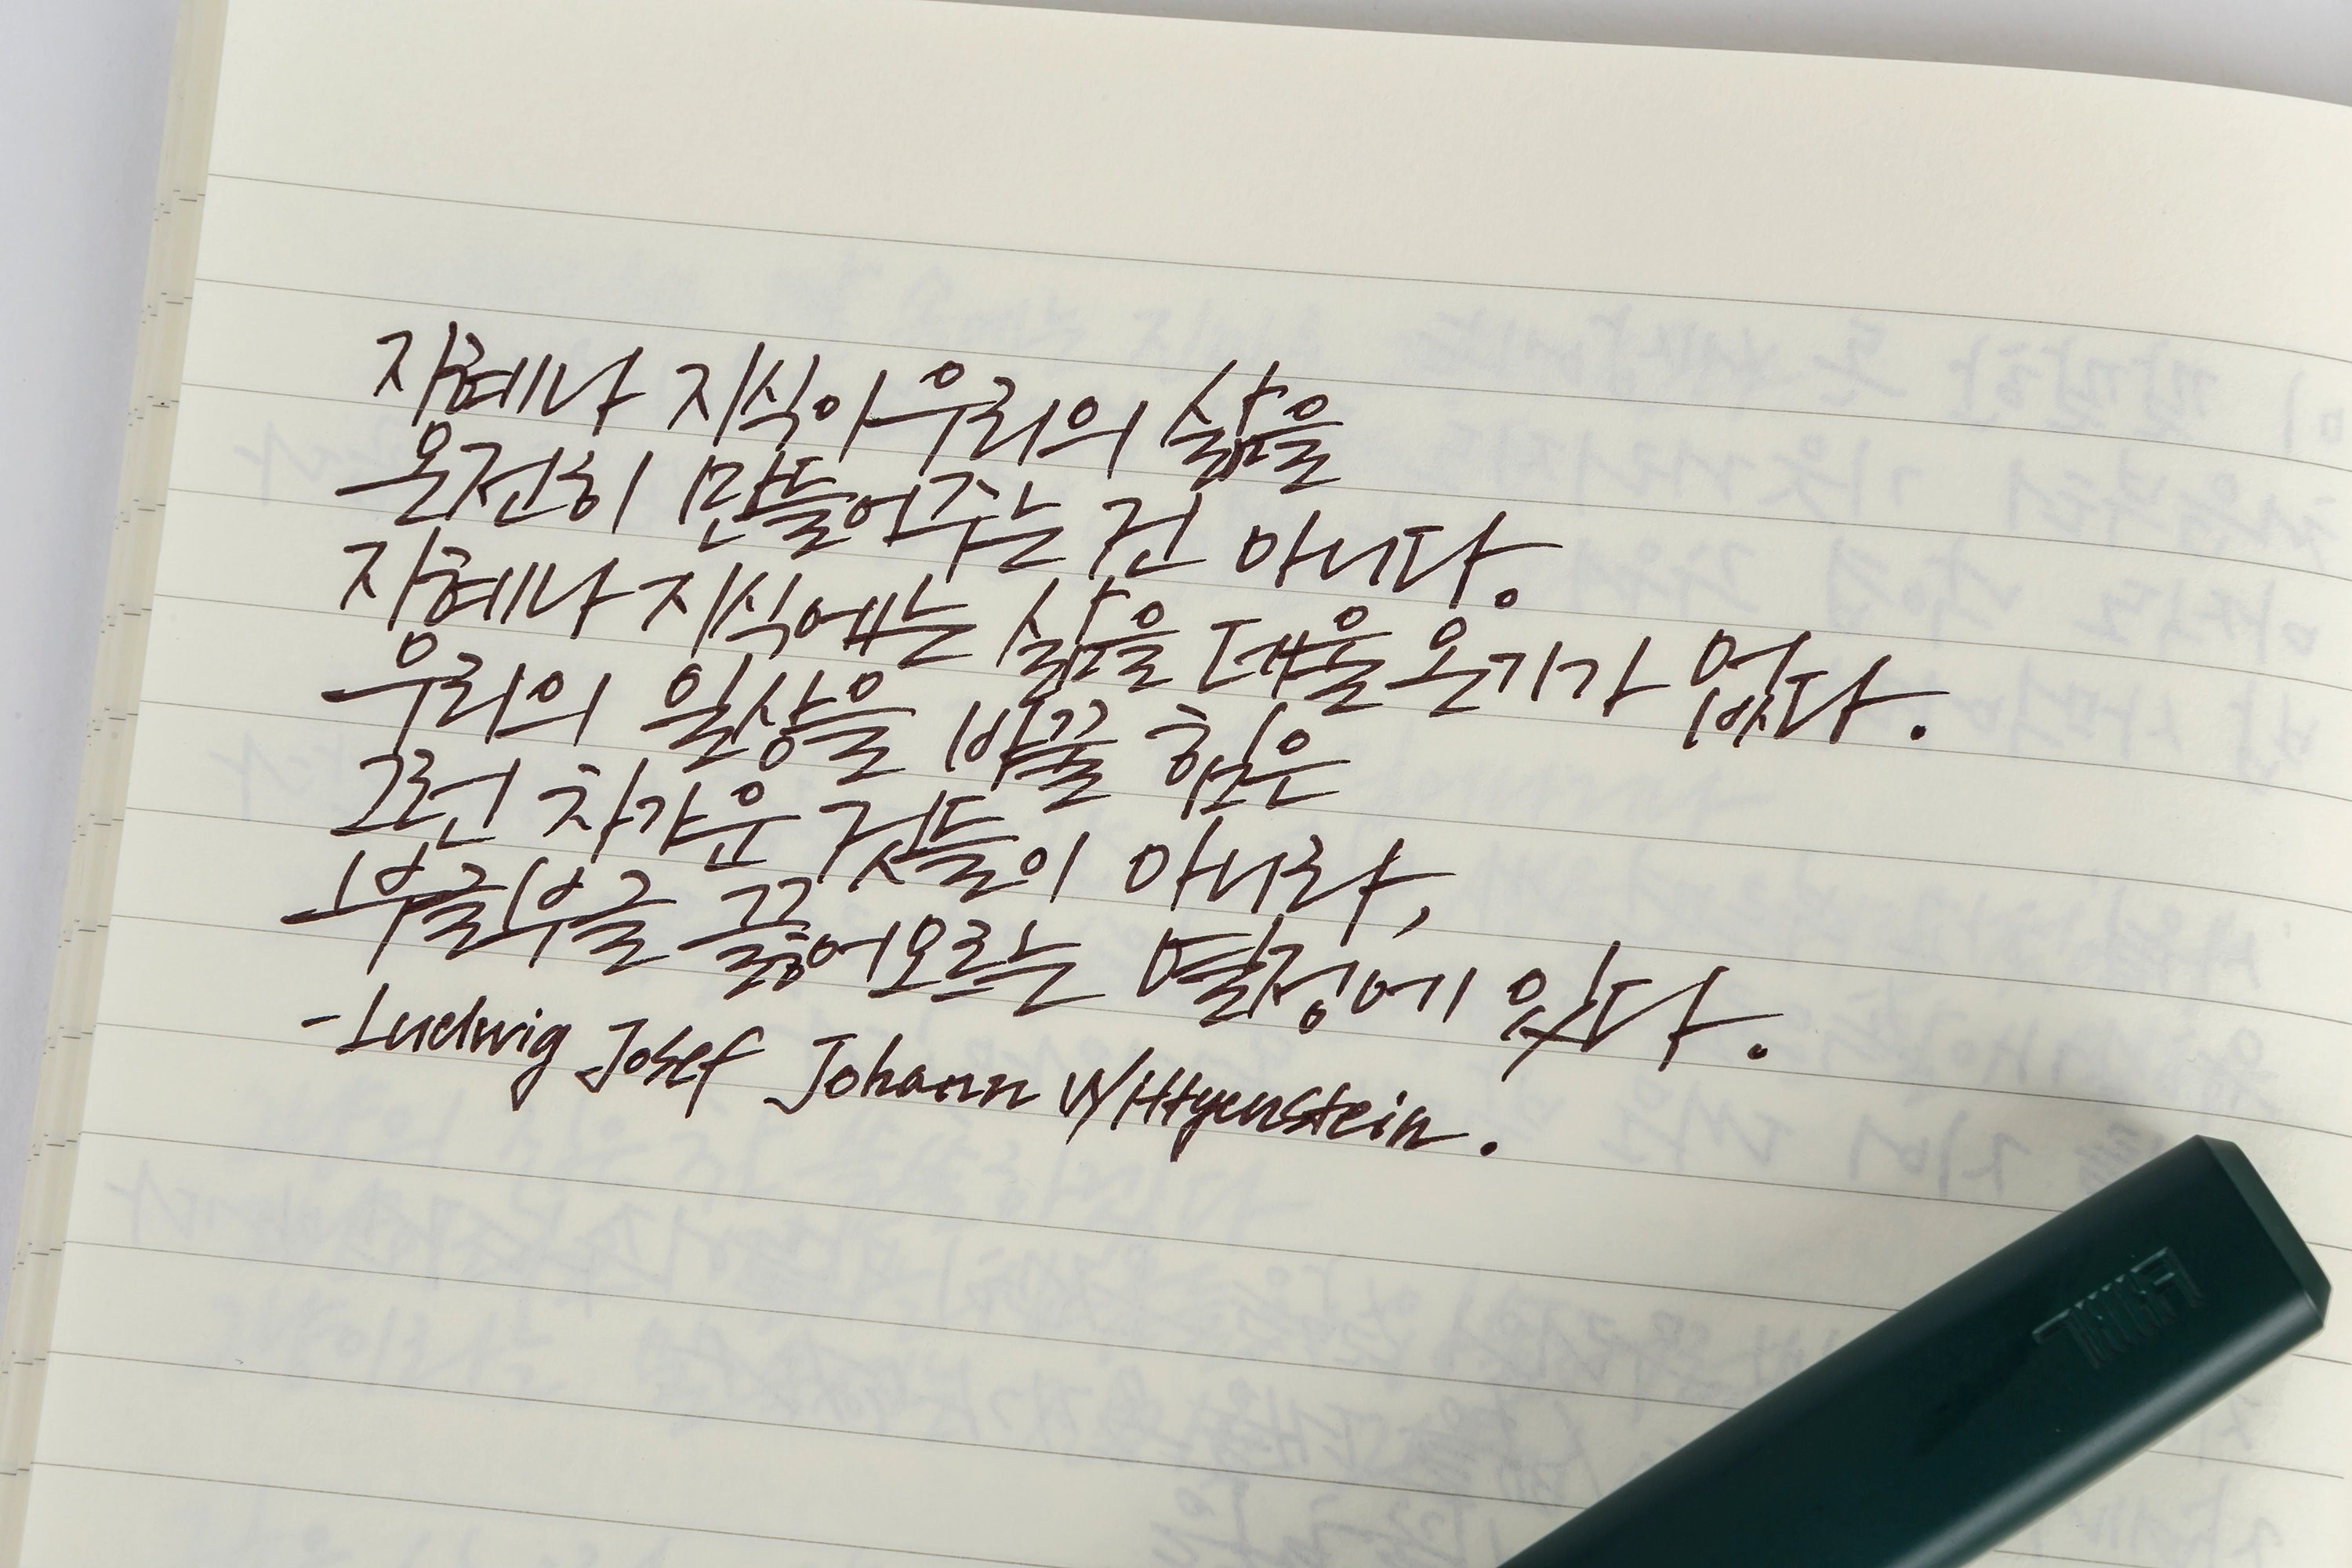 지혜나 지식이 우리의 삶을
온전히 만들어주는 건 아니다.
지혜나 지식에는 삶을 데울 온기가 없다.
우리의 일상을 바꿀 힘은
그런 차가운 것들이 아니라,
부글부글 끓어오르는 열정에 있다.
-Ludwig Josef Johann Wittgenstein.